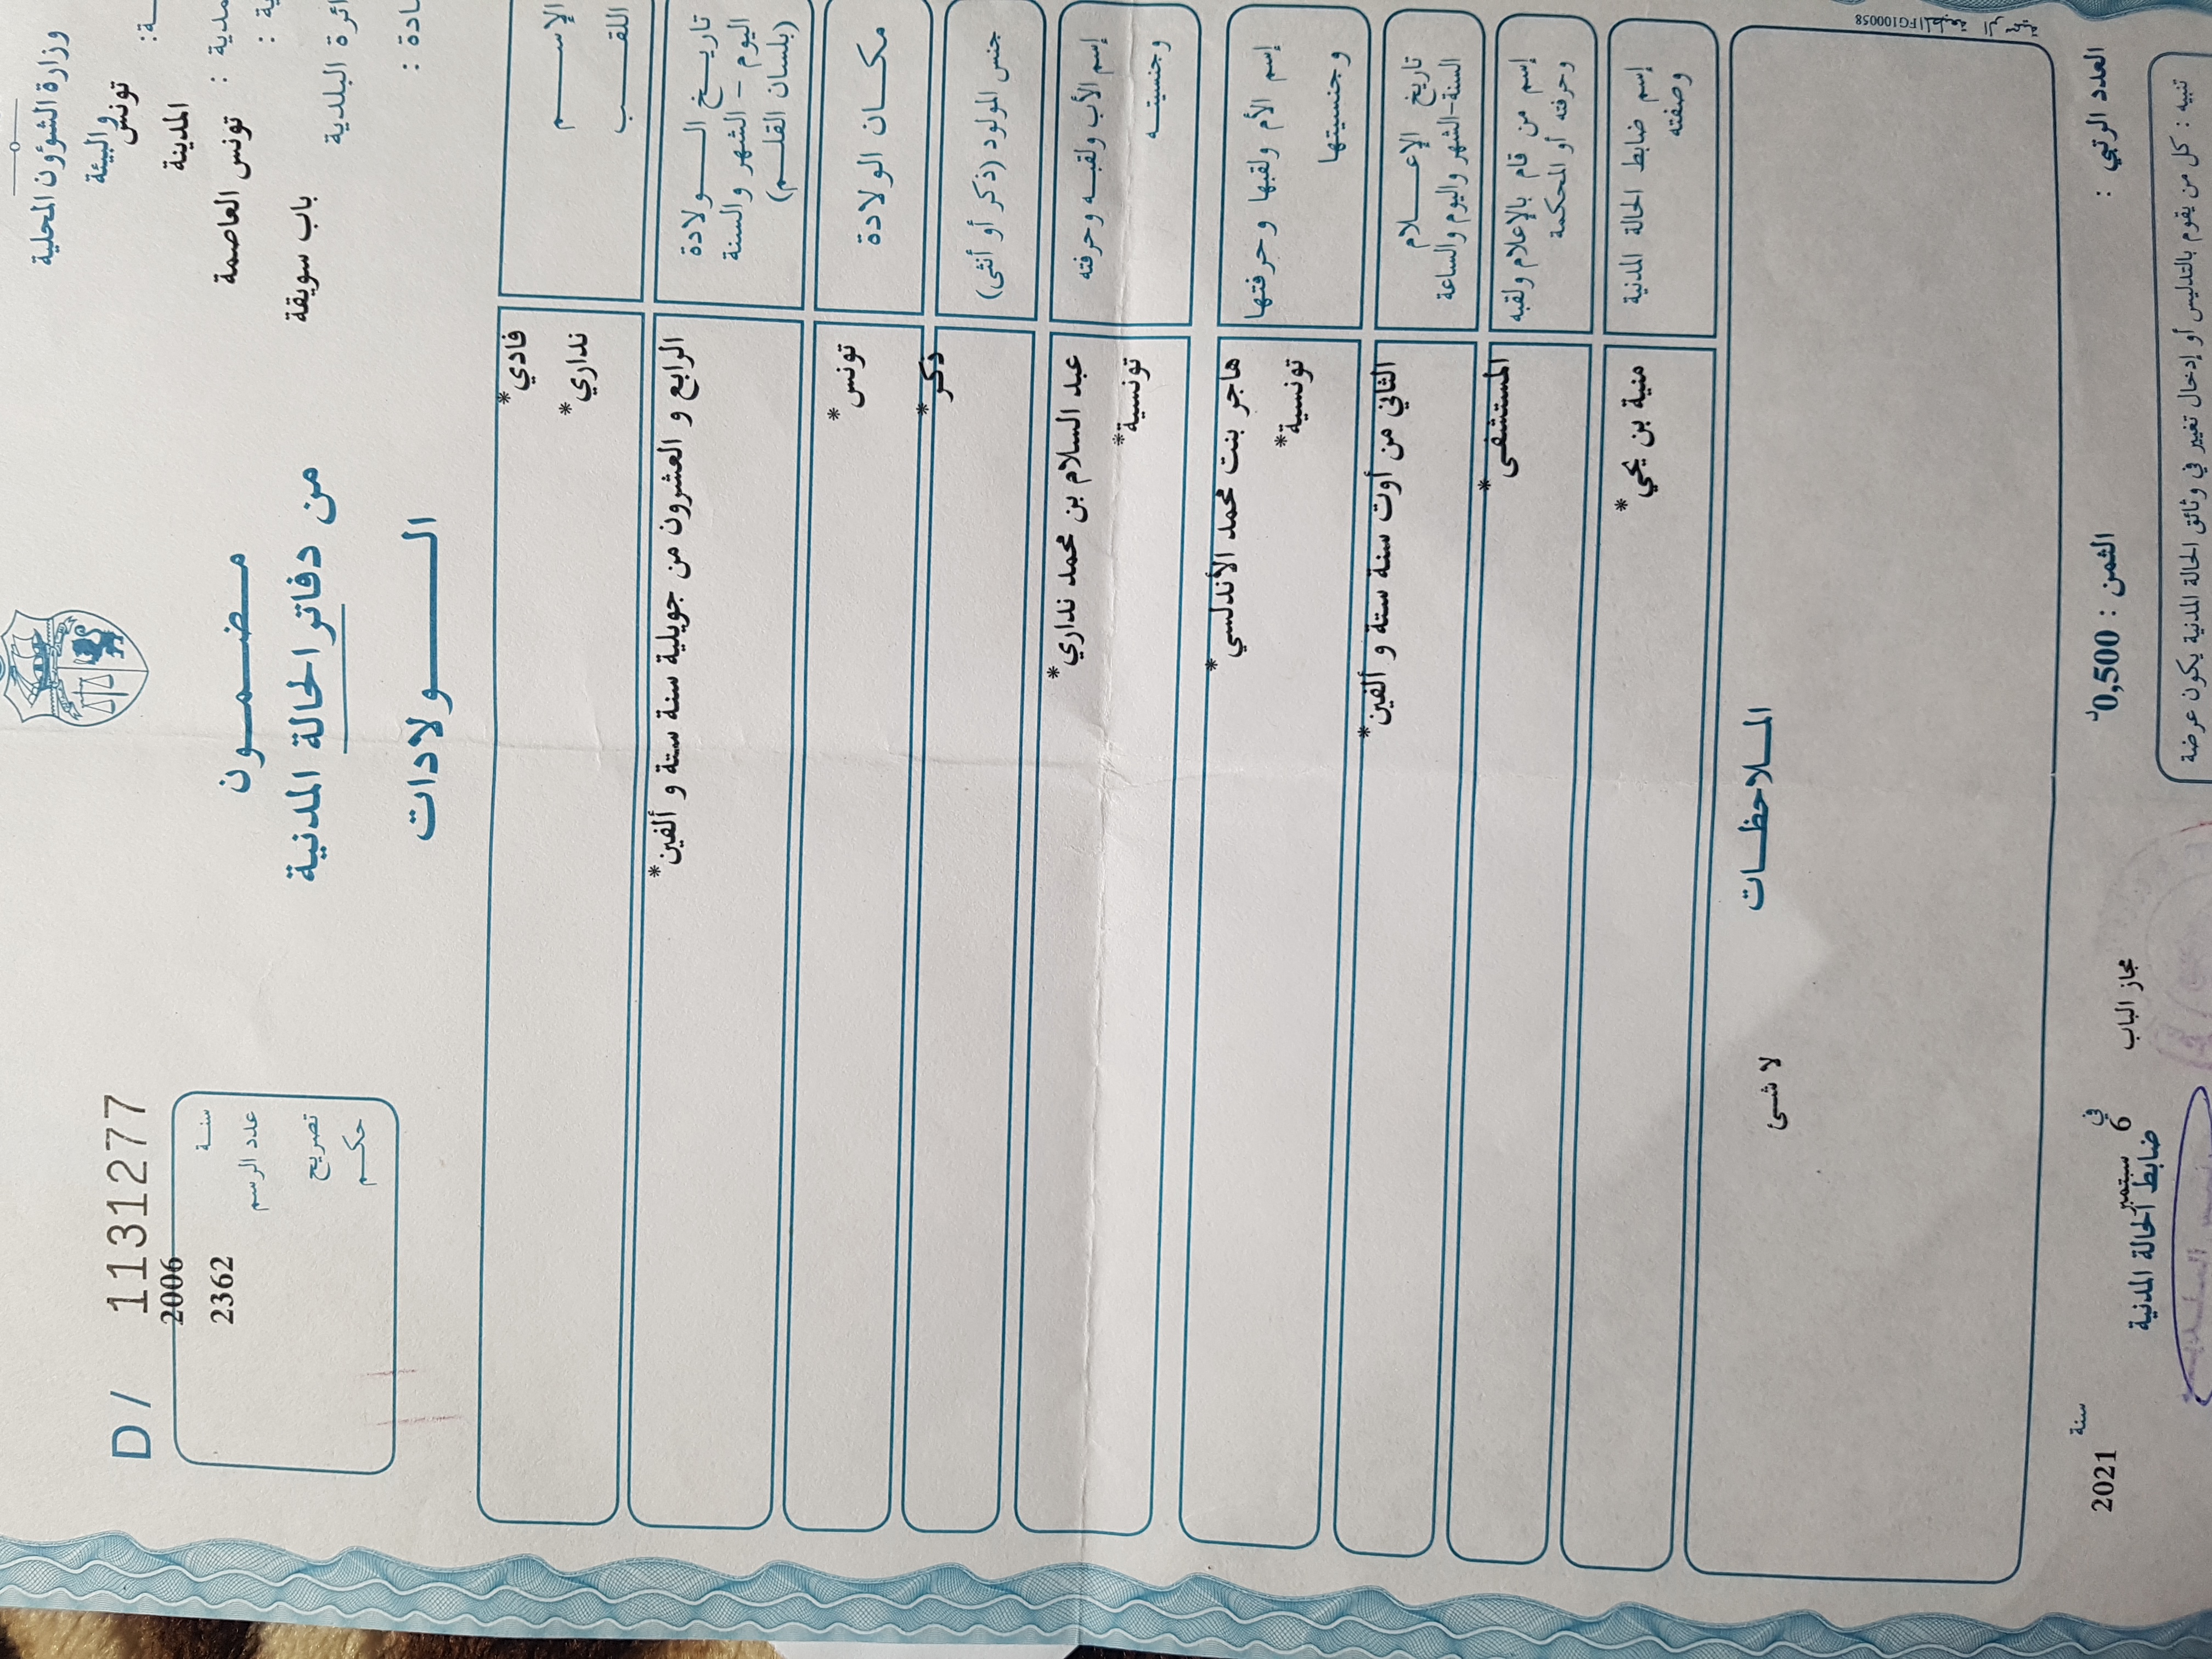 وزارة الشؤون المحلية
والبيئة
تونس
المدينة
تونس العاصمة
باب سويقة
D / 11131277
سنة 2006
عدد الرسم 2362
تصريح
حكم
مضمون
من دفاتر الحالة المدنية
الولادات
الإسم
فادي*
اللقب
نداري*
تاريخ الولادة
اليوم - الشهر والسنة
(بلسان القلم)
الرابع و العشرون من جويلية سنة ستة و ألفين*
مكان الولادة
تونس*
جنس المولود (ذكر أو أنثى)
ذكر*
إسم الأب ولقبه وحرفته
عبد السلام بن محمد نداري*
وجنسيته
تونسية*
إسم الأم ولقبها وحرفتها
هاجر بنت محمد الأندلسي*
وجنسيتها
تونسية*
تاريخ الإعلام
السنة-الشهر واليوم والساعة
الثاني من أوت سنة ستة و ألفين*
إسم من قام بالإعلام ولقبه
وحرفته أو المحكمة
المستشفى*
إسم ضابط الحالة المدنية
وصفته
منية بن يحي*
الملاحظات
لا شئ
FG100058
العدد الرتبي :
الثمن : 0,500د
مجاز الباب في 6 سبتمبر سنة 2021
ضابط الحالة المدنية
تنبيه : كل من يقوم بالتدليس أو إدخال تغيير في وثائق الحالة المدنية يكون عرضة